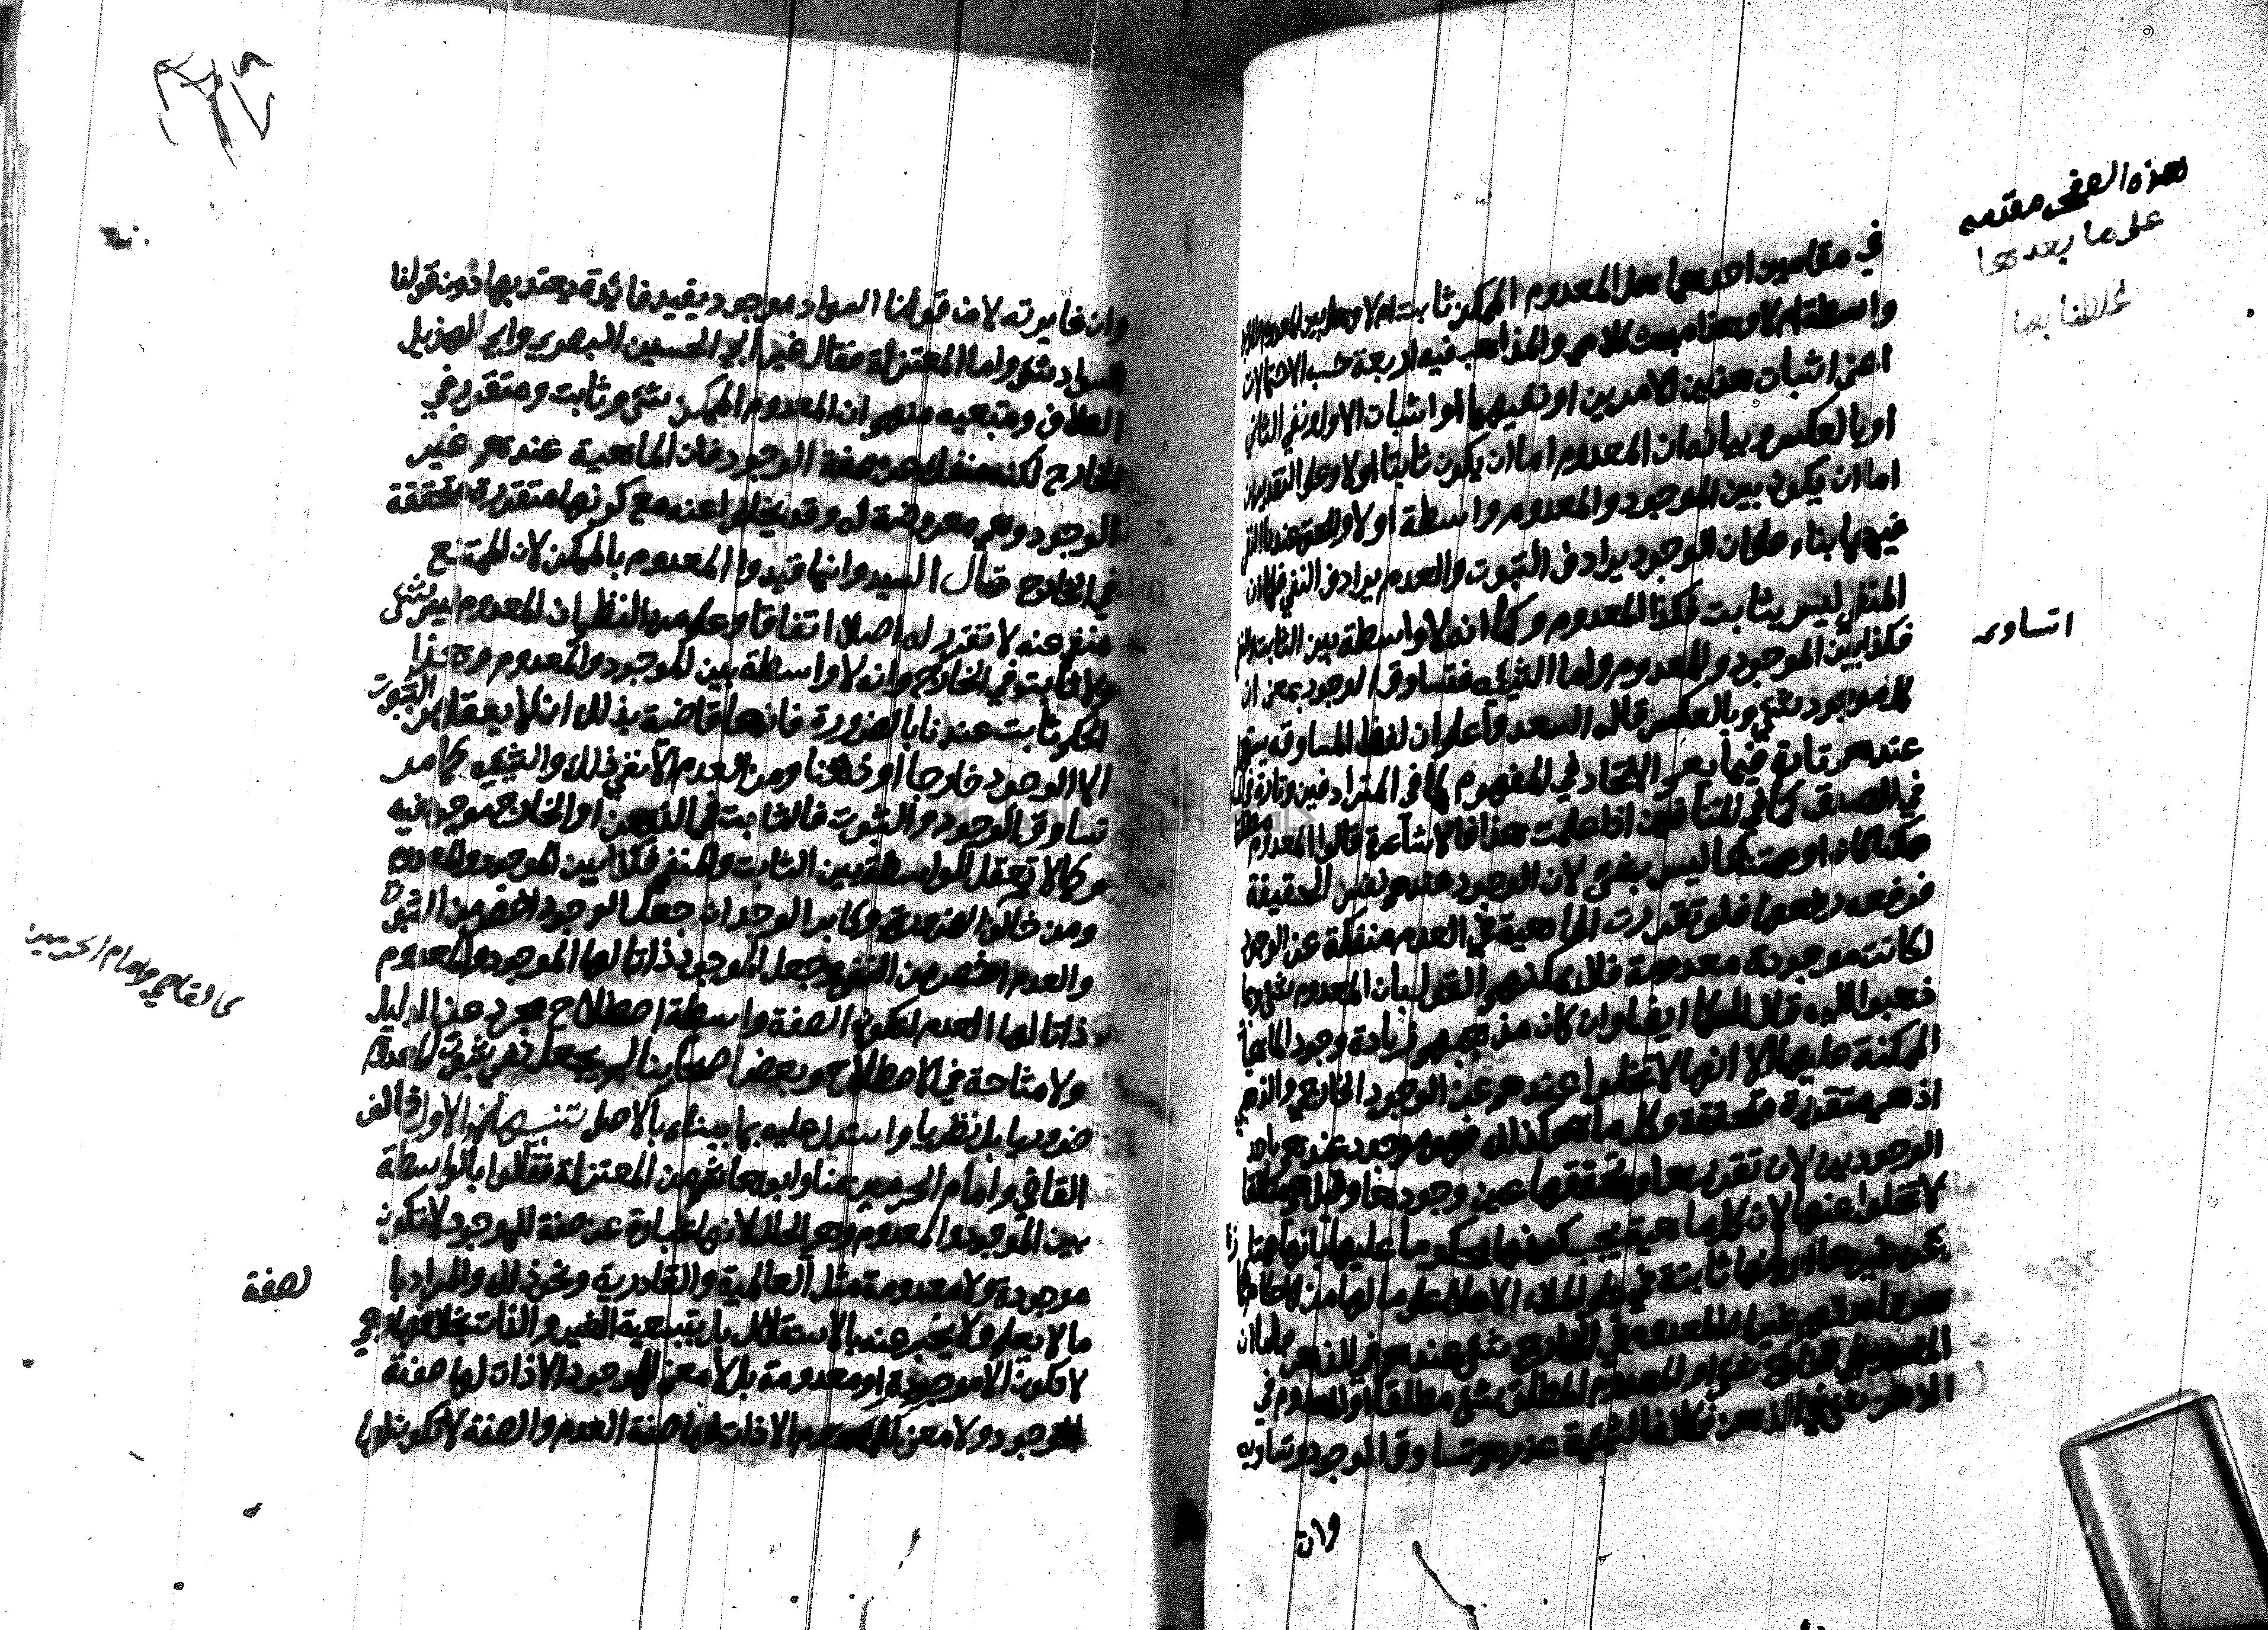 هذه الصفحة مقدمة
على ما بعدها
في مقامين احدهما هل المعدوم الممكن ثابت ام لا وهل بين المعدوم
واسطة ام لا وهذا مبحث كلامي والمذاهب فيه اربعة حسب الاحتمالات
اعني اثبات هذين الامرين او نفيهما او اثبات الاول ونفي الثاني
او بالعكس وبيانه ان المعدوم اما ان يكون ثابتا او لا وعلى التقديرين
اما ان يكون بين الموجود والمعدوم واسطة او لا والحق عندنا النفي
فيهما بناء على ان الوجود يرادف الثبوت والعدم يرادف النفي فكما ان
المنفي ليس بثابت فكذا المعدوم وكما انه لا واسطة بين الثابت
فكذا بين الموجود والمعدوم واما الشيئية فتساوق الوجود بمعنى ان
كل موجود شيء وبالعكس قال السعد واعلم ان لفظ المساوقة
عندهم تارة فيما يعم الاتحاد في المفهوم كما في المترادفين وتارة
في الصدق كما في اذا علمت هذا فالاشاعرة قالوا المعدوم مطلقا
ممكنا كان او ممتنعا ليس بشيء لان الوجود عندهم نفس الحقيقة
فرفعه رفعها فلو تقررت الماهية في العدم منفكة عن الوجود
لكانت موجودة معدومة فلا يمكنهم القول بان المعدوم شيء وبما
ذهبوا اليه قال الحكما ايضا وان كان مذهبهم زيادة وجود الماهيات
الممكنة عليها الا انها لا تخلوا عندهم عن الوجود الخارجي والذهني
اذ هي متقررة متحققة وكل ما هو كذلك فهو موجود عندهم باحد
الوجودين لان تقررها وتحققها عين وجودها وقيل مطلقا
لا تخلوا عنها لان كل ماهية يجب كونها محكوما عليها بانها ممتازة
عن غيرها او لانها ثابتة في علم الملاء الاعلى على ما لها من الاحكام
المعدوم في الخارج شيء عندهم في الذهن
المعدوم في الخارج شيء او المعدوم المطلق شيء مطلقا او المعدوم في
الذهن فكلا فالشيئية عندهم تساوق الوجود وتساويه
وان
اتساويه
وان غايرته لان قولنا السواد موجود يفيد فائدة يعتد بها دون قولنا
السواد شيء واما المعتزلة فقال غير ابي الحسين البصري وابي الهزيل
العلاف ومتبعيه منهم ان المعدوم الممكن شيء وثابت ومتقرر في
الخارج لكنه منفك عن صفة الوجود فان الماهية عندهم غير
الوجود وهي معروضة له وقد يخلوا عنه مع كونها متقررة متحققة
في الخارج قال السيد وانما قيدوا المعدوم بالممكن لان الممتنع
منفي عنه لا تقرر له اصلا اتفاقا وعلم من النظم ان المعدوم ليس بشيء
ولا ثابت في الخارج وانه لا واسطة بين الموجود والمعدوم وهذا
الحكم ثابت عندنا بالضرورة فانها قاضية بذلك اذ لا يعقل من الثبوت
الا الوجود خارجا او ذهنا ومن العدم الا نفي ذلك والشيء كما مر
تساوق الوجود والثبوت فالثابت في الذهن او الخارج موجود فيه
وكما لا تعقل الواسطة بين الثابت والمنفي فكذا بين الموجود والمعدوم
ومن خالف الضرورة وكابر الوجدان جعل الوجود اخص من الثبوت
والعدم اخص من النفي وجعل الموجود ذاتا لها الموجود والمعدوم
ذاتا لها العدم لتكون الصفة واسطة اصطلاح مجرد عن الدليل
ولا مشاحة في الاصطلاح وبعض اصحابنا لم يجعل نفي ثبوت المعدوم
ضروريا بل نظريا واستدل عليه بما بيناه بالاصل تنبيهان الاول خالف
القاضي وامام الحرمين منا وابو هاشم من المعتزلة فقالوا بالواسطة
بين الموجود والمعدوم وهو الحال لانها عبارة عن صفة للموجود لا تكون
موجودة ولا معدومة مثل العالمية والقادرية ونحو ذلك والمراد بها
ما لا يعلم ولا يخبر عنه بالاستقلال بل بتبعية الغير والذات بخلافها وهي
لا تكون الا موجودة او معدومة بل لا معنى للموجود الا ذات لها صفة
الوجود ولا معنى للمعدوم الا ذات لها صفة العدم والصفة لا تكون لها
كالقاضي وامام الحرمين
لصفة